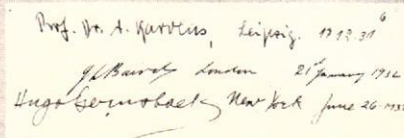 Prof. Dr. A. Karolus, Leipzig. 17.12.31
London 21st January 1932
Hugo Gernsback New York June 26-1932